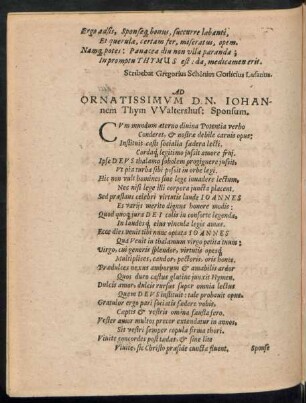 Ergo adsis, Sponseq́ bonus, succurre labanti,
Et querulæ, certam fer, miseratus, opem.
Namq́ potes: Panacea diu non ulla paranda;
In promptu THYMUS est: da, medicamen erit.
Scribebat Gregorius Schönius Gorlicius Lusatius.
AD
ORNATISSIMVM D.N. IOHAN-
nem Thym VValtershus: Sponsum.
CVm mundum æterno divina Potentia verbo
Conderet, & nostræ debile carnis opus:
Instituit casti socialia fœdera lecti,
Cordaq́, legitimo jussit amore frui.
Ipse DEVS thalamo sobolem propignere jussit,
Vt pia turba sibi posset in orbe legi.
His non vult homines sine lege invadere lectum,
Nec nisi lege illi corpora juncta placent.
Sed præstans celebri virtutis laude IOANNES
Es variis merito dignus honore modis;
Quod quoq́ jura DEI colis in consorte legenda,
In laudesq́, ejus vincula legis amas.
Ecce dies venit tibi nunc optata IOANNES
Qua Venit in thalamum virgo petita tuum;
Virgo, cui generis splendor, virtutis opesq́
Multiplices, candor, pectoris, oris honos.
Prædulces nexus amborum & amabilis ardor
Quos dura castus glutine junxit Hymen.
Dulcis amor, dulcis rursus super omnia lectus
Quem DEVS instituit: tale probavit opus.
Gratulor ergo pari sociatis fœdere vobis,
Captis & vestris omina fausta fero.
Vester amor multos precor extendatur in annos,
Sit vestri semper copula firma thori.
Vivite concordes post tædas, & sine lite
Vivite, sic Christo præside cuncta fluent.
Sponse